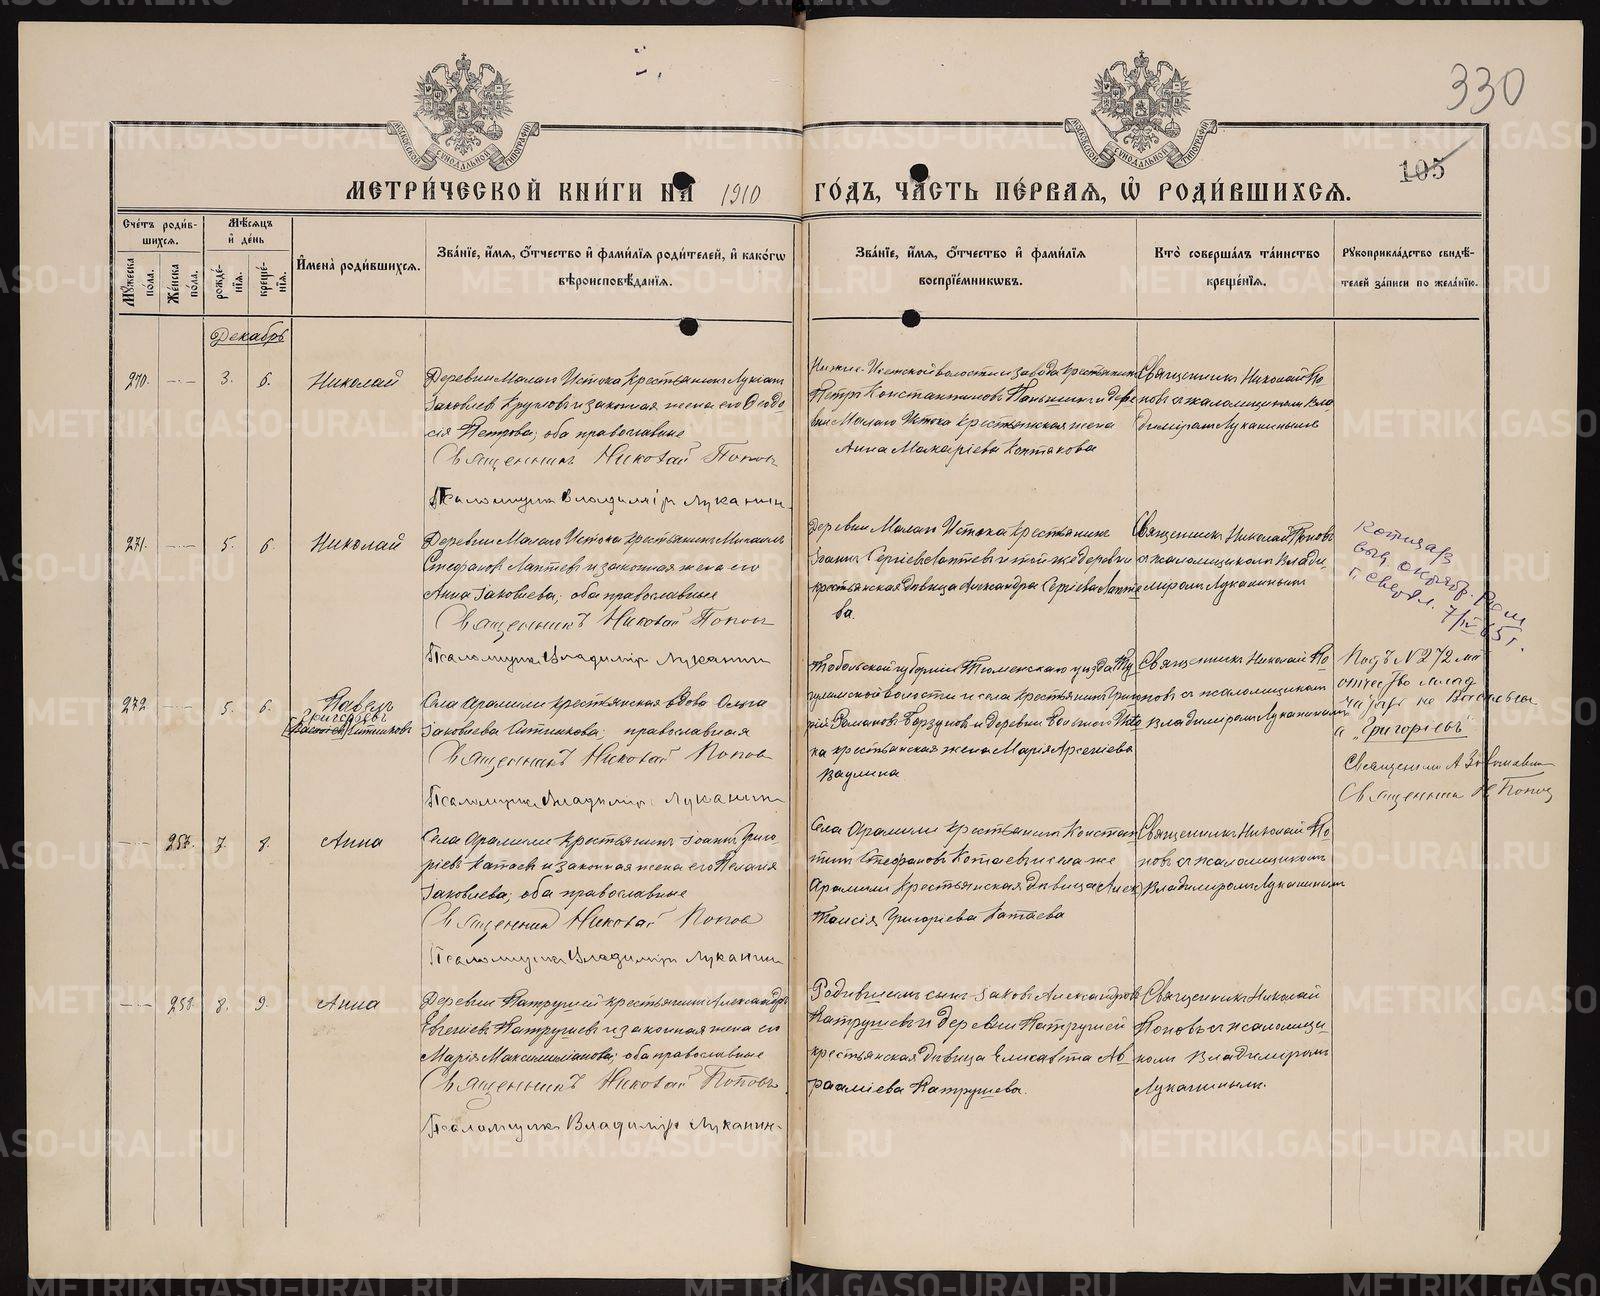 330
105
МЕТРИ́ЧЕСКОЙ КНИ́ГИ НА 1910 ГО́ДЪ, ЧА́СТЬ ПЕ́РВАЯ, Ѡ РОДИ́ВШИХСЯ.
Сче́тъ роди́вшихся.
Му́жеска по́ла.
Же́нска по́ла.
Мѣ́сяцъ и де́нь
рожде́нїя.
креще́нїя.
И҆мена̀ роди́вшихся.
Зва́нїе, и҆́мя, ѻ҆́тчество и҆ фами́лїя роди́телей, и҆ како́гѡ
вѣроисповѣ́данїя.
Зва́нїе, и҆́мя, ѻ҆́тчество и҆ фами́лїя
воспрїе́мниковъ.
Кто̀ соверша́лъ та́инство
креще́нїя.
Рукоприкла́дство свидѣ́-
телей за́писи по жела́нїю.
Декабрь
270. 3. 6. Николай
Деревни Малаго Истока крестьянинъ Лукіанъ
Іаковлев и законная жена его Ѳеодо-
сія Петрова, оба православные
Священникъ Николай Поповъ
Псаломщикъ Владиміръ Луканинъ
Нижне-Исетской волости и завода крестьянинъ
Петръ Константиновъ и дере
вни Малаго Истока крестьянская жена
Анна Макаріева Коптякова
Священникъ Николай По
повъ съ псаломщикомъ Вла
диміромъ Луканинымъ
271. 5. 6. Николай
Деревни Малаго Истока крестьянинъ Михаилъ
Стефановъ Лаптевъ и законная жена его
Анна Іаковлева, оба православные
Священникъ Николай Поповъ
Псаломщикъ Владиміръ Луканин
Деревни Малаго Истока крестьянинъ
Іоаннъ Сергіевъ Лаптевъ и той же деревни
крестьянская дѣвица Александра Сергіева Лапте
ва.
Священникъ Николай Поповъ
съ псаломщикомъ Влади
міромъ Луканинымъ
выд.
г. Свердл. 7/IV 65 г.
272 5. 6. Павелъ
Григорьевъ
Ситниковъ
Села Арамили крестьянская вдова Ольга
Іаковлева Ситникова, православная
Священникъ Николай Попов
Псаломщикъ Владиміръ Луканин
Тобольской губерніи Тюменскаго уѣзда Ту
гулымской волости и села крестьянинъ Григо
рій Романовъ и деревни
ка крестьянская жена Марія Арсеніева
Ваулина
Священникъ Николай По
повъ съ псаломщикомъ
Владиміромъ Луканинымъ
Подъ № 272 мъ
отчество млад
не Васильевъ
а „Григорьевъ"
Священникъ А
Священникъ Н Попов
257. 7. 8. Анна
Села Арамили крестьянинъ Іоаннъ Григо-
ріевъ Катаевъ и законная жена его Пелагія
Іаковлева, оба православные
Священник Николай Попов
Псаломщикъ Владиміръ Луканин
Села Арамили крестьянинъ Констан
тинъ Стефановъ Катаевъ и села же
Арамили крестьянская дѣвица
Таисія Григоріева Катаева
Священникъ Николай По
повъ съ псаломщикомъ
Владиміромъ Луканинымъ
258. 8. 9. Анна
Деревни Патрушей крестьянинъ Александръ
Евгеніевъ Патрушевъ и законная жена его
Марія Максимиліанова, оба православные
Священникъ Николай Поповъ
Псаломщикъ Владиміръ Луканин
Родившихъ сынъ Іаковъ Александровъ
Патрушевъ и деревни Патрушей
крестьянская дѣвица Елисавета Ав
рааміева Патрушева.
Священникъ Николай
Поповъ съ псаломщи-
комъ Владиміромъ
Луканинымъ.